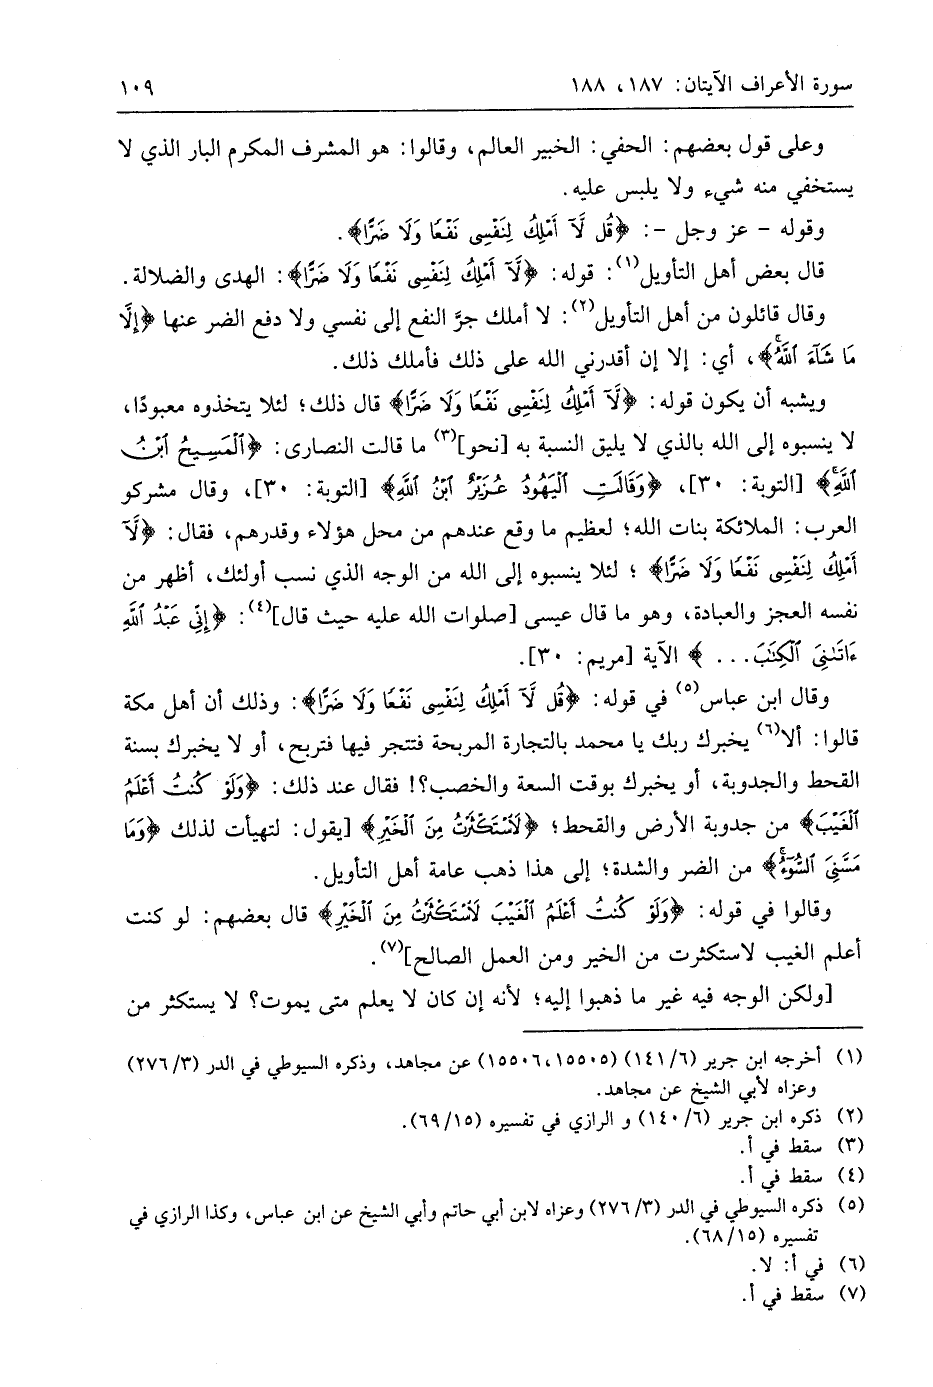 سورة الأعراف الآيتان: ١٨٧، ١٨٨ ١٠٩
وعلى قول بعضهم: الحفي: الخبير العالم، وقالوا: هو المشرف المكرم البار الذي لا
يستخفي منه شيء ولا يلبس عليه.
وقوله - عز وجل -: ﴿قُل لَّآ أَمْلِكُ لِنَفْسِى نَفْعًا وَلَا ضَرًّا﴾.
قال بعض أهل التأويل(١): قوله: ﴿لَّآ أَمْلِكُ لِنَفْسِى نَفْعًا وَلَا ضَرًّا﴾: الهدى والضلالة.
وقال قائلون من أهل التأويل(٢): لا أملك جرَّ النفع إلى نفسي ولا دفع الضر عنها ﴿إِلَّا
مَا شَآءَ ٱللَّهُۚ﴾، أي: إلا إن أقدرني الله على ذلك فأملك ذلك.
ويشبه أن يكون قوله: ﴿لَّآ أَمْلِكُ لِنَفْسِى نَفْعًا وَلَا ضَرًّا﴾ قال ذلك؛ لئلا يتخذوه معبودًا،
لا ينسبوه إلى الله بالذي لا يليق النسبة به [نحو](٣) ما قالت النصارى: ﴿ٱلْمَسِيحُ ٱبْنُ
ٱللَّهِۚ﴾ [التوبة: ٣٠]، ﴿وَقَالَتِ ٱلْيَهُودُ عُزَيْرٌ ٱبْنُ ٱللَّهِ﴾ [التوبة: ٣٠]، وقال مشركو
العرب: الملائكة بنات الله؛ لعظيم ما وقع عندهم من محل هؤلاء وقدرهم، فقال: ﴿لَّآ
أَمْلِكُ لِنَفْسِى نَفْعًا وَلَا ضَرًّا﴾ ؛ لئلا ينسبوه إلى الله من الوجه الذي نسب أولئك، أظهر من
نفسه العجز والعبادة، وهو ما قال عيسى [صلوات الله عليه حيث قال](٤): ﴿إِنِّى عَبْدُ ٱللَّهِ
ءَاتَىٰنِىَ ٱلْكِتَٰبَ... ﴾ الآية [مريم: ٣٠].
وقال ابن عباس(٥) في قوله: ﴿قُل لَّآ أَمْلِكُ لِنَفْسِى نَفْعًا وَلَا ضَرًّا﴾: وذلك أن أهل مكة
قالوا: ألا(٦) يخبرك ربك يا محمد بالتجارة المربحة فتتجر فيها فتربح، أو لا يخبرك بسنة
القحط والجدوبة، أو يخبرك بوقت السعة والخصب؟! فقال عند ذلك: ﴿وَلَوْ كُنتُ أَعْلَمُ
ٱلْغَيْبَ﴾ من جدوبة الأرض والقحط؛ ﴿لَٱسْتَكْثَرْتُ مِنَ ٱلْخَيْرِ﴾ [يقول: لتهيأت لذلك ﴿وَمَا
مَسَّنِىَ ٱلسُّوٓءُۚ﴾ من الضر والشدة؛ إلى هذا ذهب عامة أهل التأويل.
وقالوا في قوله: ﴿وَلَوْ كُنتُ أَعْلَمُ ٱلْغَيْبَ لَٱسْتَكْثَرْتُ مِنَ ٱلْخَيْرِ﴾ قال بعضهم: لو كنت
أعلم الغيب لاستكثرت من الخير ومن العمل الصالح](٧).
[ولكن الوجه فيه غير ما ذهبوا إليه؛ لأنه إن كان لا يعلم متى يموت؟ لا يستكثر من
(١) أخرجه ابن جرير (٦/ ١٤١) (١٥٥٠٥، ١٥٥٠٦) عن مجاهد، وذكره السيوطي في الدر (٣/ ٢٧٦)
وعزاه لأبي الشيخ عن مجاهد.
(٢) ذكره ابن جرير (٦/ ١٤٠) و الرازي في تفسيره (١٥/ ٦٩).
(٣) سقط في أ.
(٤) سقط في أ.
(٥) ذكره السيوطي في الدر (٣/ ٢٧٦) وعزاه لابن أبي حاتم وأبي الشيخ عن ابن عباس، وكذا الرازي في
تفسيره (١٥/ ٦٨).
(٦) في أ: لا.
(٧) سقط في أ.